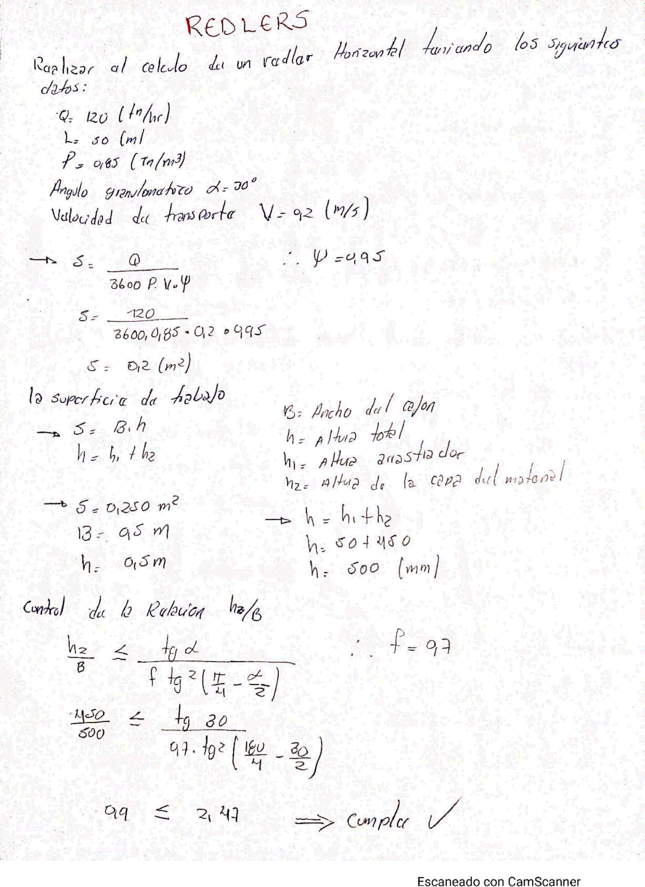 REDLERS
Raalizar al celculo da un radlar Horizontal taniando los siguiantas
datos:
Q= 120 (tn/hr)
L= 50 (m)
P= 0,85 (Tn/m3)
Angulo granulomatrico α= 30°
Valocidad da transporta V= 0,2 (m/s)
→ S= Q / 3600 P. V. Ψ ∴ Ψ = 0,95
S= 120 / 3600, 0,85 • 0,2 • 0,95
S= 0,2 (m²)
la superficia da trabajo
B= Ancho dal cajon
→ S= B. h
h= Altura total
h = h1 + h2
h1= Altura arrastrador
h2= Altura de la capa dal matarial
→ S= 0,250 m²
→ h = h1 + h2
B= 0,5 m
h= 50 + 450
h= 0,5 m
h= 500 (mm)
Control da la Ralacion h2/B
h2/B ≤ tg α / f tg² (π/4 - α/2) ∴ f = 0,7
450/500 ≤ tg 30 / 0,7. tg² (180/4 - 30/2)
0,9 ≤ 2,47 ⟹ Cumpla ✓
Escaneado con CamScanner